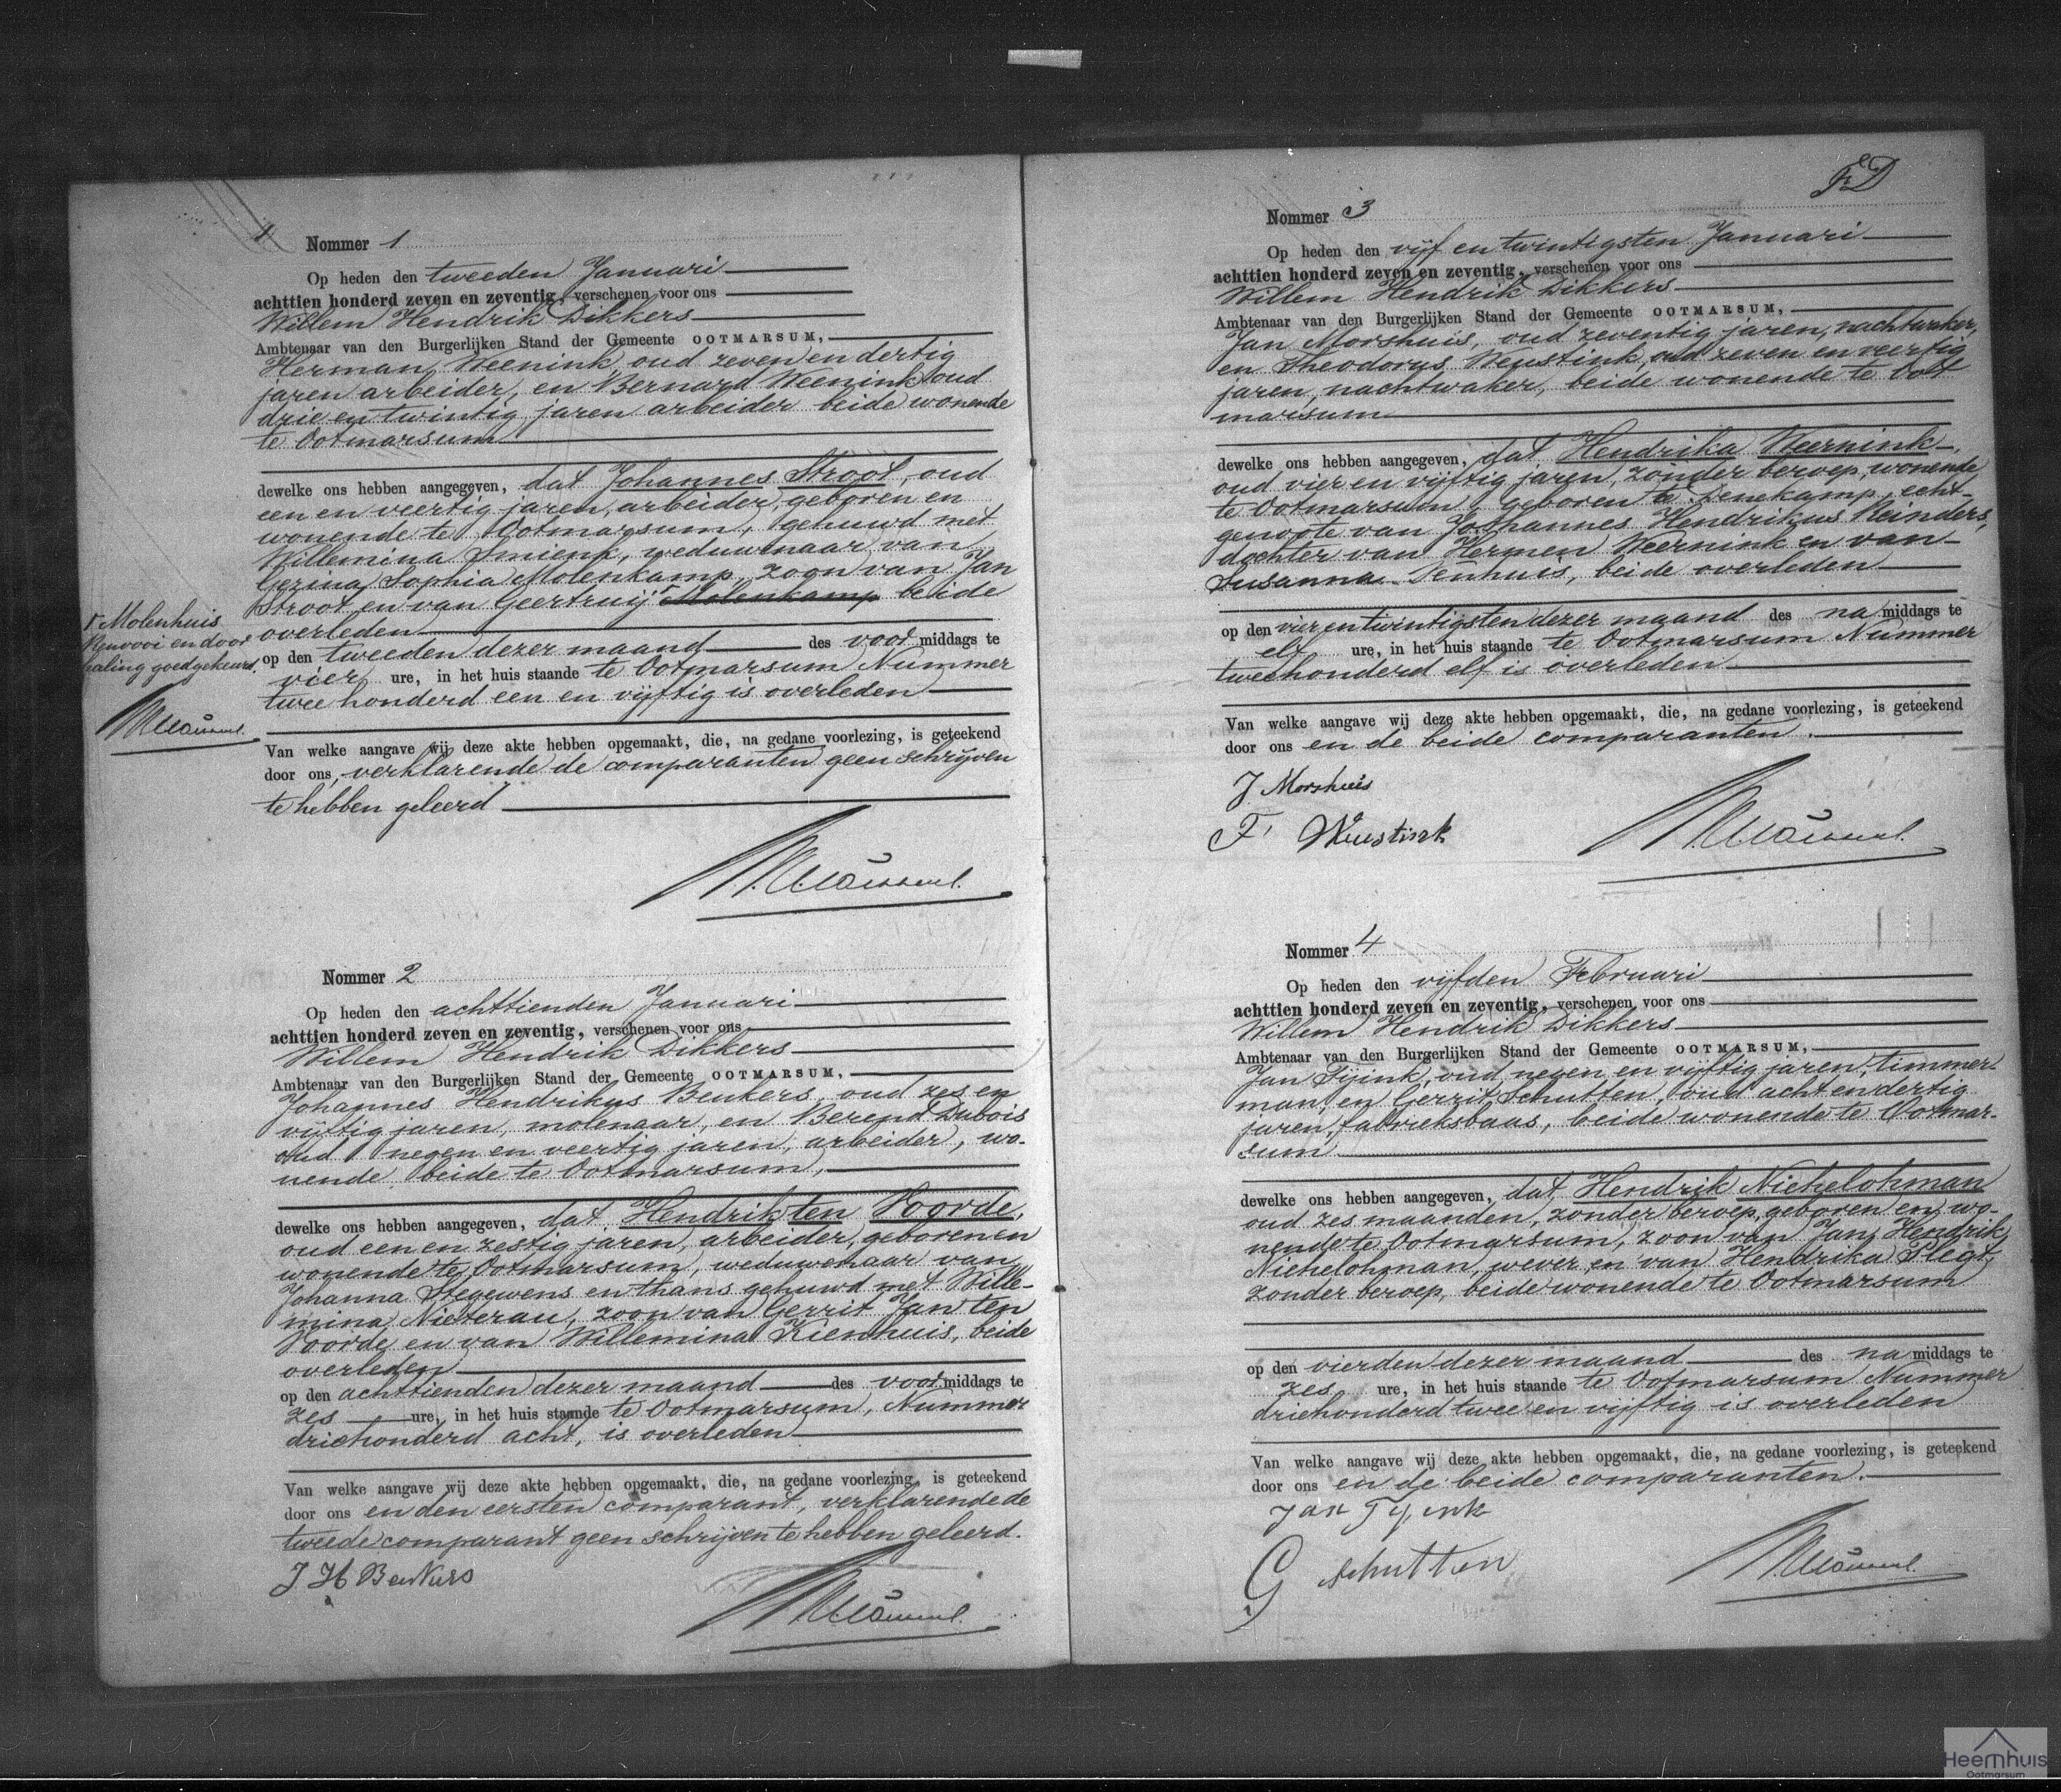 Nommer 1
Op heden den tweeden Januari
achttien honderd zeven en zeventig, verschenen voor ons
Willem Hendrik Dikkers
Ambtenaar van den Burgerlijken Stand der Gemeente OOTMARSUM,
Herman Weenink, oud zeven en dertig
jaren arbeider, en Bernard Weenink oud
drie en twintig jaren arbeider beide wonende
te Ootmarsum
dewelke ons hebben aangegeven, dat Johannes Stroot, oud
een en veertig jaren, arbeider, geboren en
wonende te Ootmarsum, gehuwd met
Willemina Smienk, weduwenaar van
Gezina Sophia Molenkamp, zoon van Jan
Stroot en van Geertruij Molenkamp beide
overleden
op den tweeden dezer maand des voormiddags te
vier ure, in het huis staande te Ootmarsum Nummer
twee honderd een en vijftig is overleden
Van welke aangave wij deze akte hebben opgemaakt, die, na gedane voorlezing, is geteekend
door ons, verklarende de comparanten geen schrijven
te hebben geleerd
Molenhuis
Renvooi en door
haling goedgekeurd.
Nommer 2
Op heden den achttienden Januari
achttien honderd zeven en zeventig, verschenen voor ons
Willem Hendrik Dikkers
Ambtenaar van den Burgerlijken Stand der Gemeente OOTMARSUM,
Johannes Hendrikus Beukers, oud zes en
vijftig jaren, molenaar, en Berend Dubois
oud negen en veertig jaren, arbeider, wo-
nende beide te Ootmarsum,
dewelke ons hebben aangegeven, dat Hendrik ten Voorde,
oud een en zestig jaren, arbeider, geboren en
wonende te Ootmarsum, weduwenaar van
Johanna Stegewens en thans gehuwd met Wille-
mina Nieterau, zoon van Gerrit Jan ten
Voorde en van Willemina Kienhuis, beide
overleden
op den achttienden dezer maand des voormiddags te
zes ure, in het huis staande te Ootmarsum, Nummer
driehonderd acht, is overleden
Van welke aangave wij deze akte hebben opgemaakt, die, na gedane voorlezing, is geteekend
door ons en den eersten comparant, verklarende de
tweede comparant geen schrijven te hebben geleerd.
J H Beukers
Nommer 3
Op heden den vijf en twintigsten Januari
achttien honderd zeven en zeventig, verschenen voor ons
Willem Hendrik Dikkers
Ambtenaar van den Burgerlijken Stand der Gemeente OOTMARSUM,
Jan Morshuis, oud zeventig jaren, nachtwaker,
en Theodorus Weustink, oud zeven en veertig
jaren, nachtwaker, beide wonende te Oot
marsum
dewelke ons hebben aangegeven, dat Hendrika Weernink,
oud vier en vijftig jaren, zonder beroep, wonende
te Ootmarsum, geboren te Denekamp, echt-
genoote van Johannes Hendrikus Reinders,
dochter van Hermen Weernink en van
Susanna Venhuis, beide overleden
op den vier en twintigsten dezer maand des namiddags te
elf ure, in het huis staande te Ootmarsum Nummer
tweehonderd elf is overleden
Van welke aangave wij deze akte hebben opgemaakt, die, na gedane voorlezing, is geteekend
door ons en de beide comparanten.
J Morshuis
F. Weustink
Nommer 4
Op heden den vijfden Februari
achttien honderd zeven en zeventig, verschenen voor ons
Willem Hendrik Dikkers
Ambtenaar van den Burgerlijken Stand der Gemeente OOTMARSUM,
Jan Tijink, oud negen en vijftig jaren, timmer-
man, en Gerrit Schutten, oud acht en dertig
jaren, fabrieksbaas, beide wonende te Ootmar-
sum
dewelke ons hebben aangegeven, dat Hendrik Niehelohman
oud zes maanden, zonder beroep, geboren en wo-
nende te Ootmarsum, zoon van Jan Hendrik
Niehelohman, wever en van Hendrika Plegt,
zonder beroep, beide wonende te Ootmarsum
op den vierden dezer maand des namiddags te
zes ure, in het huis staande te Ootmarsum Nummer
driehonderd twee en vijftig is overleden
Van welke aangave wij deze akte hebben opgemaakt, die, na gedane voorlezing, is geteekend
door ons en de beide comparanten.
Jan Tyink
G Schutten
Heemhuis
Ootmarsum